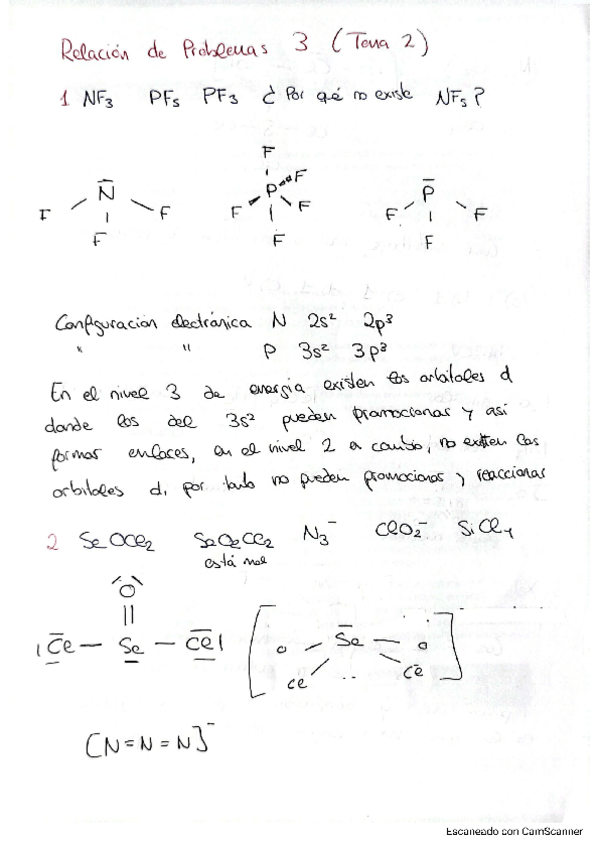 Relación de Problemas 3 (Tema 2)
1 NF₃ PF₅ PF₃ ¿Por qué no existe NF₅?
F
N P F P
F F F F F F
F F F
Configuración electrónica N 2s² 2p³
" " P 3s² 3p³
En el nivel 3 de energía existen los orbitales d
donde los del 3s² pueden promocionar y así
formar enlaces, en el nivel 2 a cambio, no existen los
orbitales d, por tanto no pueden promocionar y reaccionar
2 SeOCl₂ SeO₂Cl₂ N₃⁻ ClO₂⁻ SiCl₄
está mal
O
Cl — Se — Cl [ O — Se — O ]
Cl Cl
[N=N=N]⁻
Escaneado con CamScanner